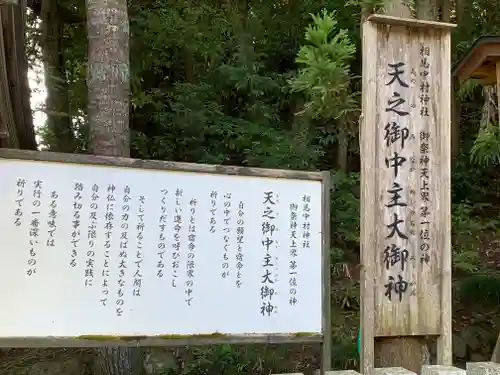 相馬中村神社
御祭神天上界第一位の神
天之御中主大御神
相馬中村神社
御祭神天上界第一位の神
天之御中主大御神
自分の願望と宿命とを
心の中でつなぐものが
祈りである
祈りとは宿命の限界の中で
新しい運命を呼びおこし
つくりだすものである
そして祈ることで人間は
自分の力の及ばぬ大きなものを
神仏に依存することによって
自分の及ぶ限りの実践に
踏み切る事ができる
ある意味では
実行の一番深いものが
祈りである